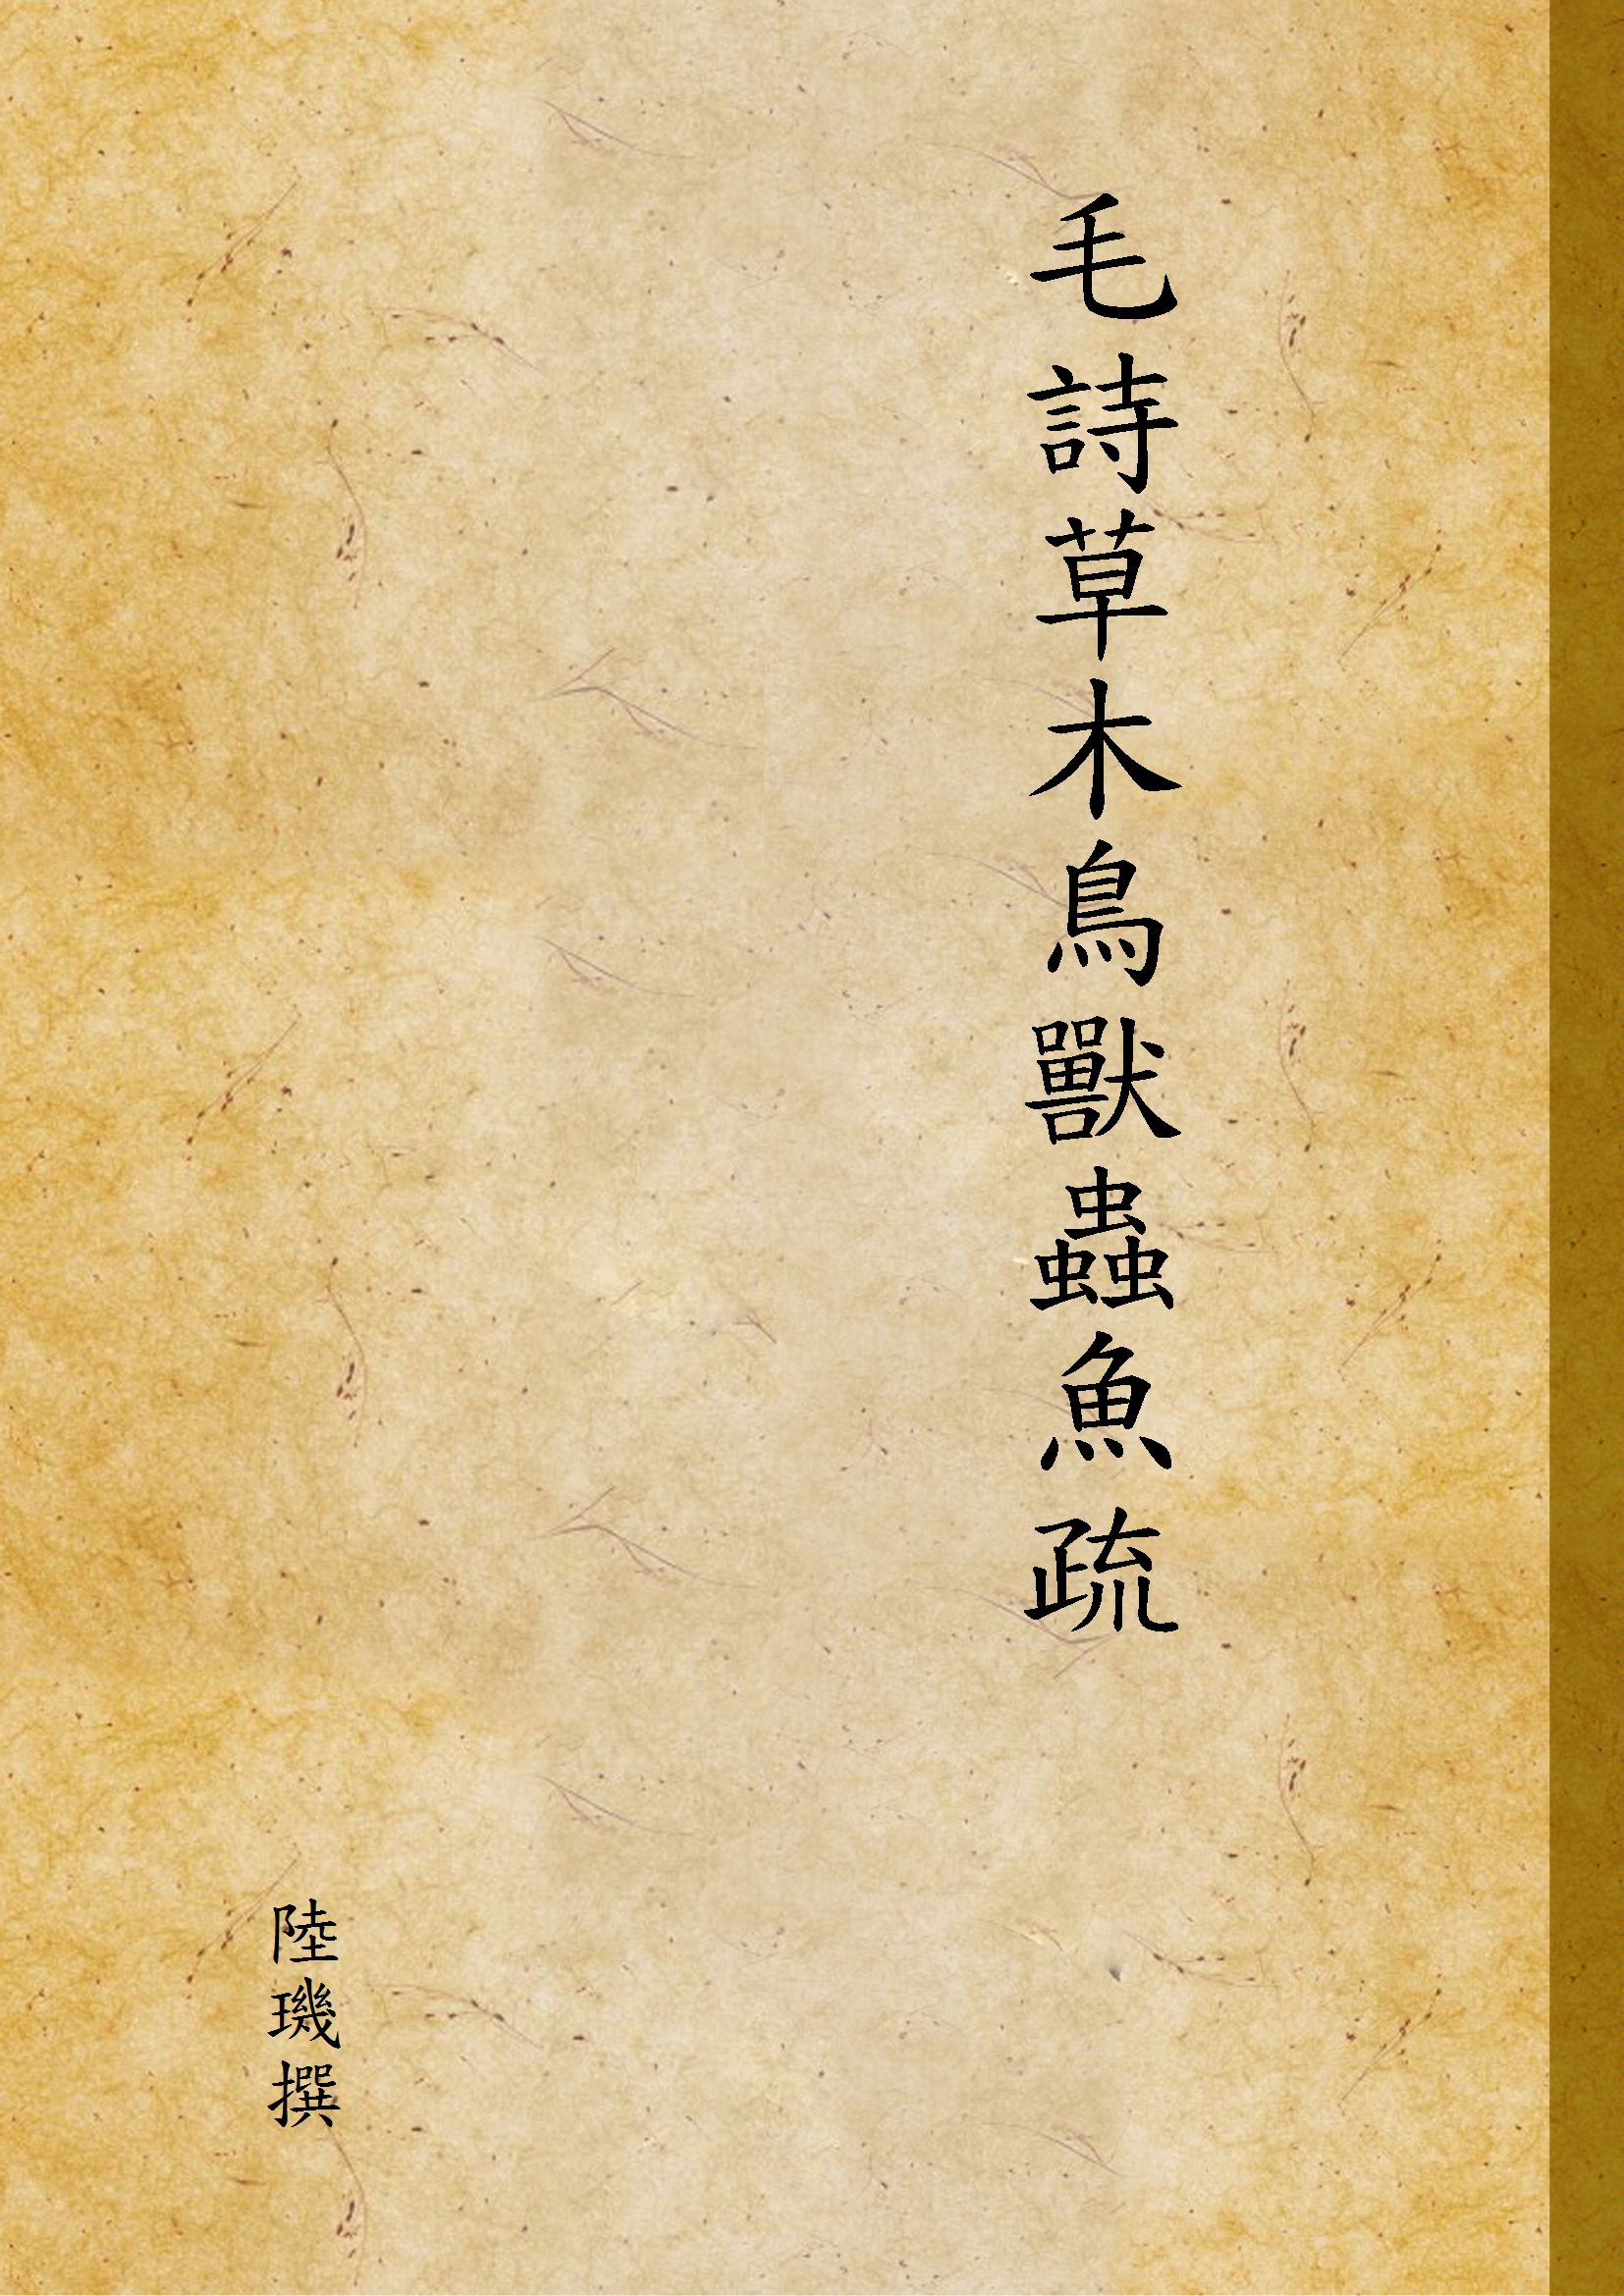 毛詩草木鳥獸蟲魚疏
陸璣撰